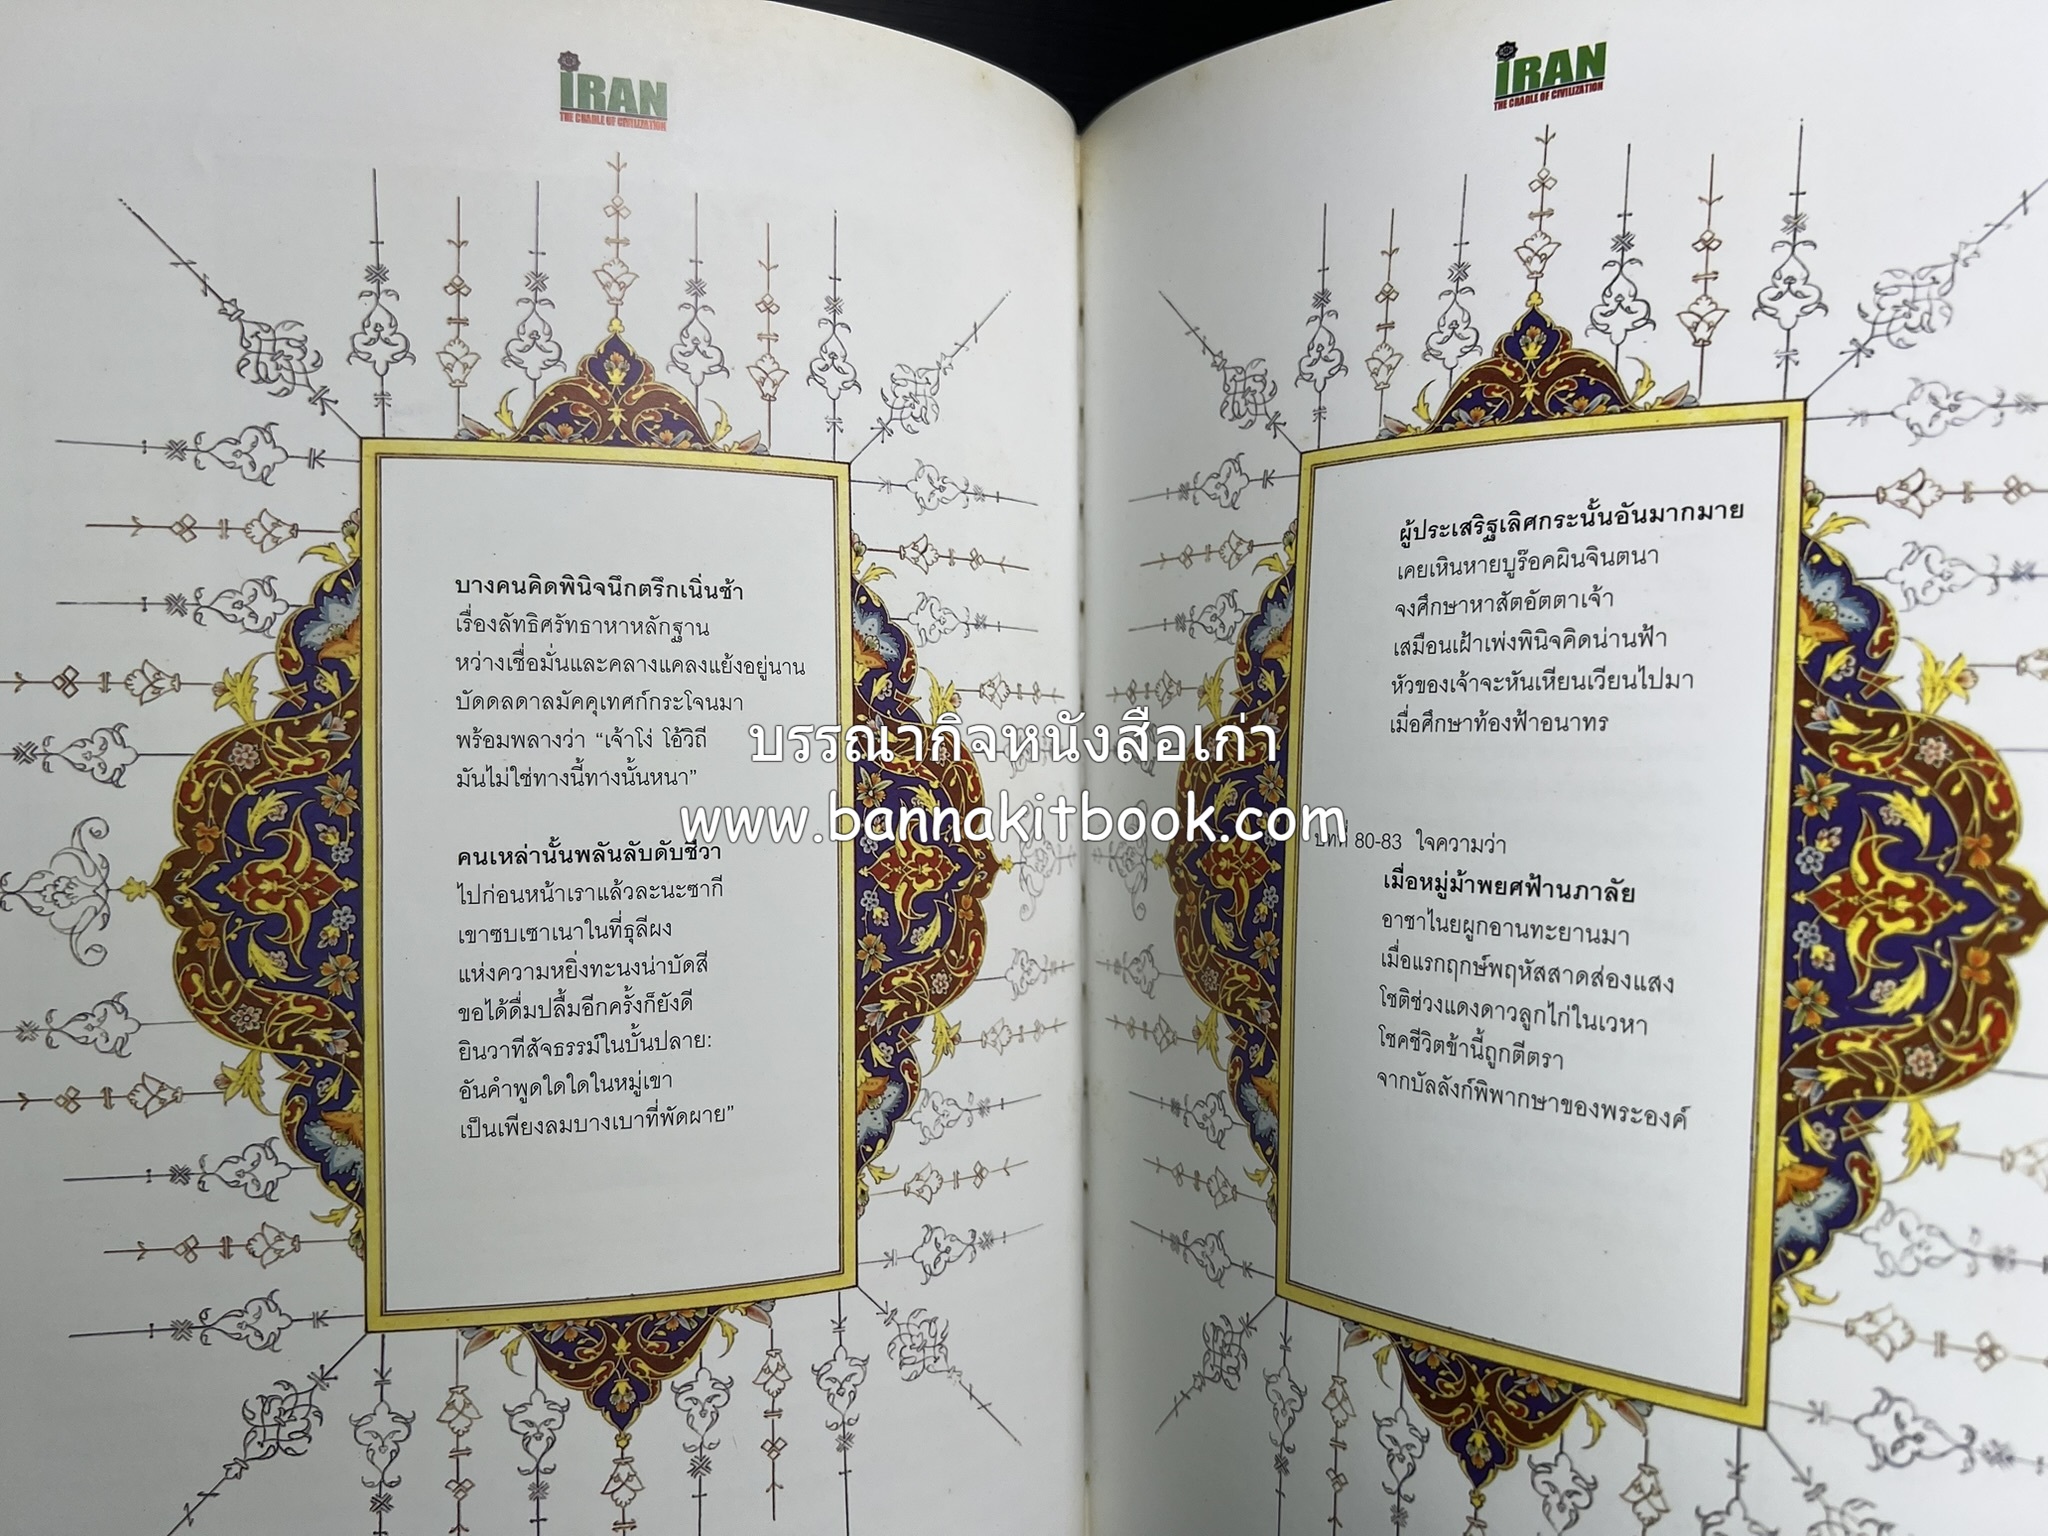 IRAN
THE CRADLE OF CIVILIZATION
บางคนคิดพินิจนึกตรึกเนิ่นช้า
เรื่องลัทธิศรัทธาหาหลักฐาน
หว่างเชื่อมั่นและคลางแคลงแย้งอยู่นาน
บัดดลดาลมัคคุเทศก์กระโจนมา
พร้อมพลางว่า “เจ้าโง่ โอ้วิถี
มันไม่ใช่ทางนี้ทางนั้นหนา”
คนเหล่านั้นพลันลับดับชีวา
ไปก่อนหน้าเราแล้วละนะซากี
เขาซบเซาเนาในที่ธุลีผง
แห่งความหยิ่งทะนงน่าบัดสี
ขอได้ดื่มปลื้มอีกครั้งก็ยังดี
ยินวาทีสัจธรรม์ในบั้นปลาย:
อันคำพูดใดใดในหมู่เขา
เป็นเพียงลมบางเบาที่พัดผาย”
IRAN
THE CRADLE OF CIVILIZATION
ผู้ประเสริฐเลิศกระนั้นอันมากมาย
เคยเหินหายบูร๊อคผินจินตนา
จงศึกษาหาสัตอัตตาเจ้า
เสมือนเฝ้าเพ่งพินิจคิดน่านฟ้า
หัวของเจ้าจะหันเหียนเวียนไปมา
เมื่อศึกษาท้องฟ้าอนาทร
บทที่ 80-83 ใจความว่า
เมื่อหมู่ม้าพยศฟ้านภาลัย
อาชาไนยผูกอานทะยานมา
เมื่อแรกฤกษ์พฤหัสสาดส่องแสง
โชติช่วงแดงดาวลูกไก่ในเวหา
โชคชีวิตข้านี้ถูกตีตรา
จากบัลลังก์พิพากษาของพระองค์
บรรณากิจหนังสือเก่า
www.bannakitbook.com